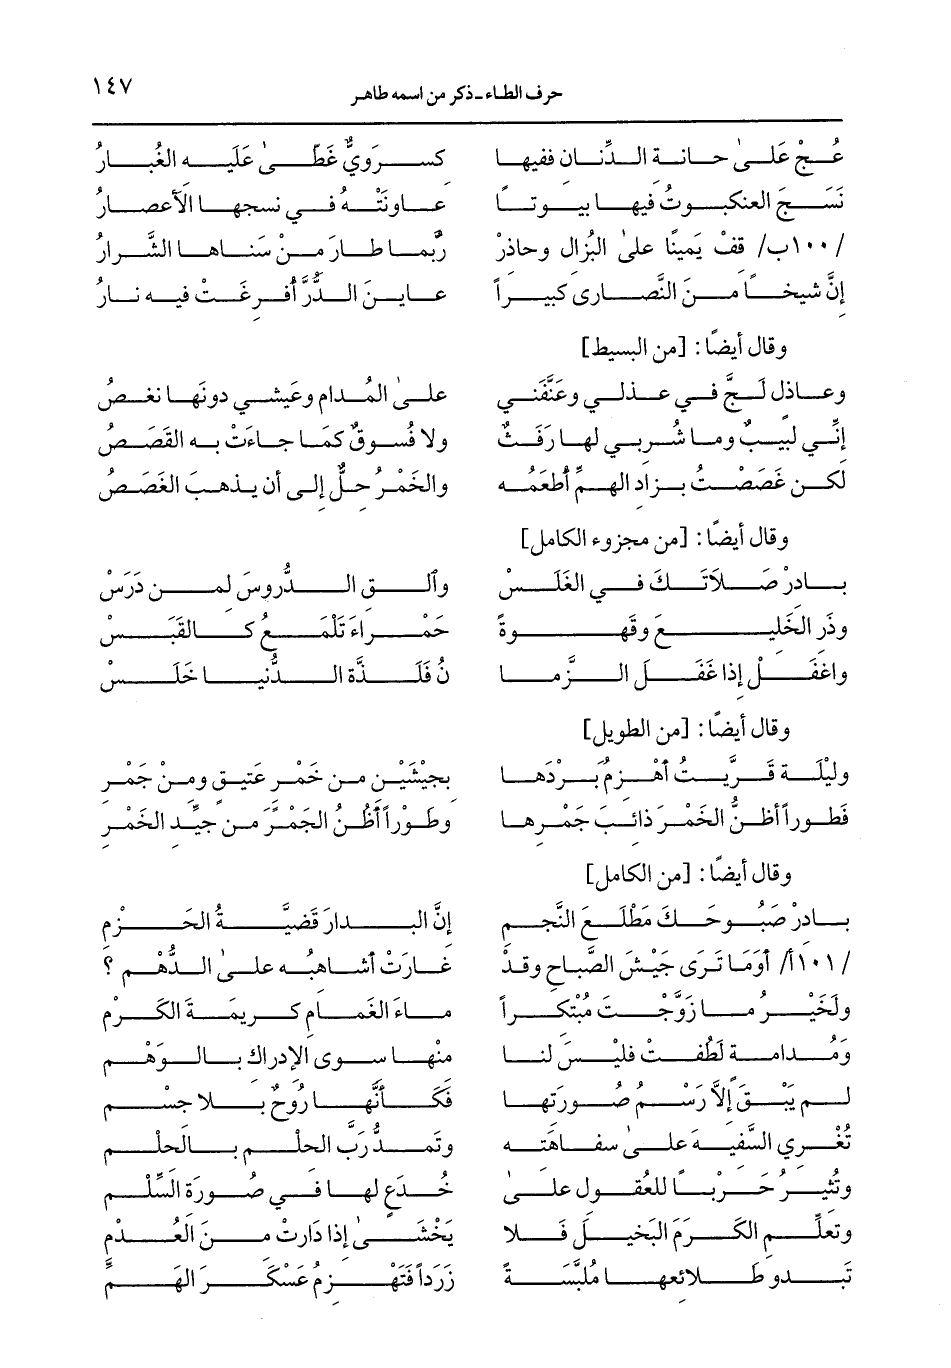 حرف الطاء ـ ذكر من اسمه طاهر ١٤٧
عُـجْ عَلـىٰ حـانـة الـدِّنـان ففيهـا كـرَوِيٌّ غَطّـى عَلَيـه الغُبـارُ
نَسَـجَ العنكبـوتُ فيهـا بيـوتـاً عـاونَتْـهُ فـي نسجهـا الأعصـارُ
/١٠٠ب/ قفْ يَمينًا علىٰ البُزال وحاذرْ رُبَّمـا طـارَ مـنْ سَنـاهـا الشَّـرارُ
إنَّ شيخـاً مـنَ النَّصـارى كبيـراً عـايـنَ الـدُّرَّ أُفـرغَـتْ فيـه نـارُ
وقال أيضًا: [من البسيط]
وعـاذل لَـجَّ فـي عـذلـي وعَنَّفَني علـىٰ المُـدام وعَيشـي دونَهـا نغـصُ
إنِّـي لَبيـبٌ ومـا شُـربـي لهـا رَفَـثٌ ولا فُسـوقٌ كمَـا جـاءَتْ بـه القَصَـصُ
لكـن غَصَصْـتُ بـزاد الهـمِّ أُطعَمُـه والخَمْـرُ حـلٌّ إلـى أن يـذهـبَ الغَصَـصُ
وقال أيضًا: [من مجزوء الكامل]
بـادرْ صَـلاتَـكَ فـي الغَلَـسْ وألـقِ الـدُّروسَ لمـن دَرَسْ
وذَرِ الخَليـعَ وقَهـوةً حَمْـراءَ تَلْمَـعُ كـالقَبَـسْ
واغفَـلْ إذا غَفَـلَ الـزَّمـا نُ فَلَـذَّة الـدُّنْيـا خَلَـسْ
وقال أيضًا: [من الطويل]
وليْلَـة قـرٍّ بـتُّ أهْـزمُ بَـرْدَهـا بجيْشَيْـن مـن خَمْـر عَتيـق ومـنْ جَمْـر
فَطـوراً أظـنُّ الخَمْـرَ ذائـبَ جَمْـرهـا وطَـوْراً أظُـنُّ الجَمْـرَ مـن جَيِّـد الخَمْـر
وقال أيضًا: [من الكامل]
بـادرْ صَبُـوحَـكَ مَطْلَـعَ النَّجـم إنَّ البـدارَ قَضيَّـةُ الحَـزْم
/١٠١أ/ أوَمَا تـرَى جَيْـشَ الصَّبـاح وقـدْ غـارَتْ أشـاهبُـه علـىٰ الـدُّهْـم ؟
ولَخَيْـرُ مـا زَوَّجْـتَ مُبْتَكـراً مـاءَ الغَمـام كـريمَـةَ الكَـرْم
ومُـدامـة لَطُفَـتْ فليْـسَ لنـا منْهـا سـوى الإدراك بـالـوَهْـم
لـم يَبْـقَ إلاَّ رَسْـمُ صُـورَتهـا فكَـأنَّهـا رُوحٌ بـلا جسْـم
تُغْـري السَّفيـهَ علـىٰ سفـاهَته وتَمُـدُّ رَبَّ الحلْـم بـالحلْـم
وتُثيـرُ حَـرْبـاً للعُقـول علـىٰ خُـدَعٍ لهـا فـي صُـورَة السِّلْـم
وتعلِّـم الكَـرَمَ البَخيـلَ فَـلا يَخْشَـىٰ إذا دَارتْ مـنَ العُـدْم
تَبـدو طـلائعهـا مُلبَّسَـةً زَرَداً فتَهْـزمُ عَسْكَـرَ الهَـمِّ